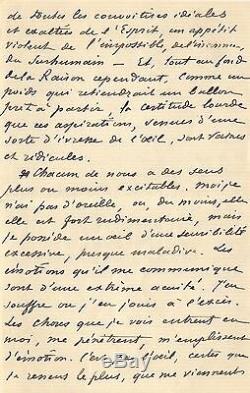 de toutes les convoitises idéales
et exaltées de l'Esprit, un appétit
violent de l'impossible, de l'inconnu,
du Surhumain — Et, tout au fond
de la Raison cependant, comme un
poids qui retiendrait un ballon
prêt à partir, la certitude lourde
que ces aspirations, venues d'une
sorte d'ivresse de l'œil, sont vaines
et ridicules.
Chacun de nous a des sens
plus ou moins excitables. Moi je
n'ai pas d'oreille, ou, du moins, elle
elle est fort rudimentaire, mais
je possède un œil d'une sensibilité
excessive, presque maladive. Les
émotions qu'il me communique
sont d'une extrême acuité. J'en
souffre ou j'en jouis à l'excès.
Les choses que je vois entrent en
moi, me pénètrent, m'emplissent
d'émotion. l'œil, certes que
je ressens le plus, que me viennent